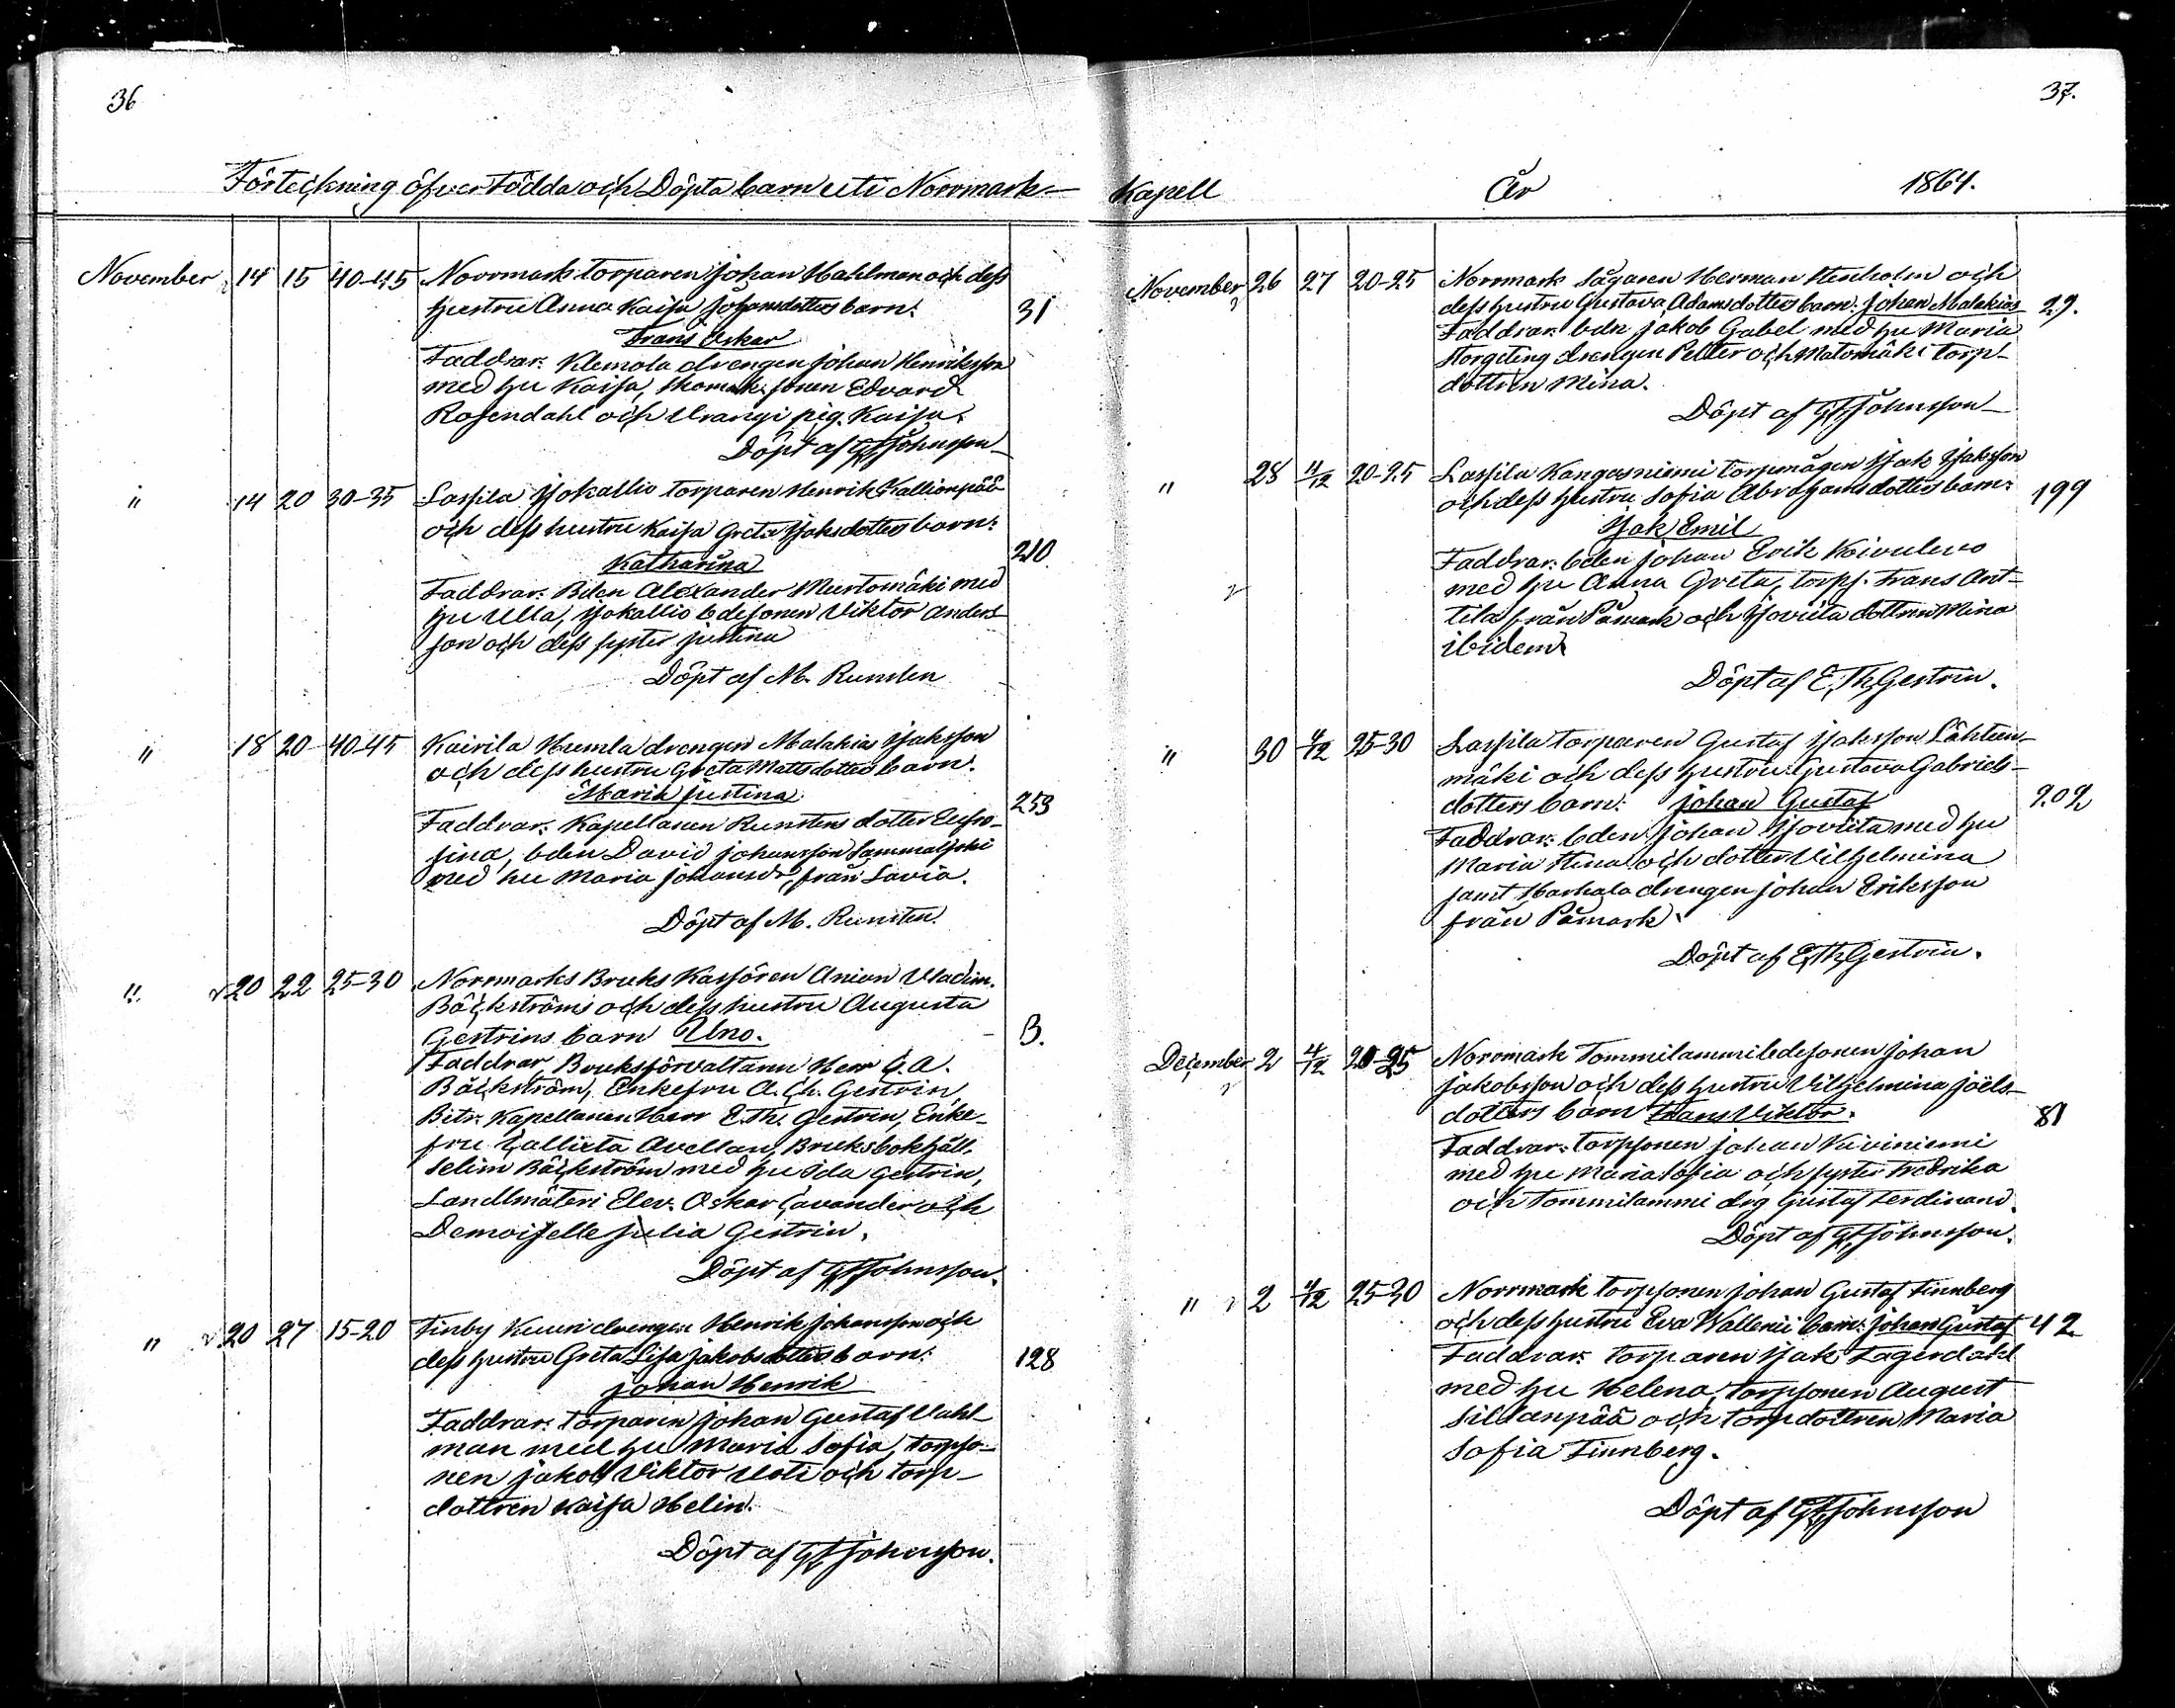 36
Förteckning öfver Födda och Döpta barn uti Norrmark
November 14 15 40-45 Norrmark torparen Johan Hahlman och dess
hustru Anna Kaisa Johansdotters barn: 31
Frans Oskar
Faddrar: Klemola drengen Johan Henriksson
med hu Kaisa, sonen Edvard
Rosendahl och pig. Kaisa.
Döpt af GFJohnsson
" 14 20 30-35 Lassila Isokallio torparen Henrik Kallionpää
och dess hustru Kaisa Greta Isaksdotters barn: 210
Katharina
Faddrar: Bden Alexander Mustomäki med
hu Ulla, Isokallio bdesonen Viktor Anders-
son och dess syster Justina
Döpt af M. Runsten
" 18 20 40-45 Kairila Humla drengen Malakias Isaksson
och dess hustru Greta Mattsdotters barn.
Maria Justina 253
Faddrar: Kapellanen Runstens dotter Eufro-
sina, bden David Johansson Sammaljoki
med hu Maria Johansd. från Lavia.
Döpt af M. Runsten.
" 20 22 25-30 Norrmarks Bruks Kassören Anion Vladim.
Bäckströms och dess hustru Augusta
Gestrins barn Uno. B.
Faddrar, Bruksförvaltaren Herr C. A.
Bäckström, Enkefru A. Ch. Gestrin,
Bitr. Kapellanen Herr E. Th. Gestrin, Enke-
fru Callixta Avellan, Bruksbokhåll.
Selim Bäckström med hu Ida Gestrin,
Landtmäteri Elev. Oskar Cavander och
Demoiselle Julia Gestrin.
Döpt af GFJohnsson.
" 20 27 15-20 Finby Kuuri drengen Henrik Johansson och
dess hustru Greta Lisa Jakobsdotters barn: 128
Johan Henrik
Faddrar: torparen Johan Gustaf Vahl-
man med hu Maria Sofia, torpso-
nen Jakob Viktor Uoti och torp-
dottren Kaisa Helin.
Döpt af GFJohnsson.
37.
Kapell År 1864.
November 26 27 20-25 Norrmark Sågaren Herman Stenholm och
dess hustru Gustava Adamsdotters barn: Johan Malakias 29.
Faddrar: bdn Jakob Gabel med hu Maria
Storgeting drengen Petter och Matomäki torp-
dottren Mina.
Döpt af GFJohnsson
" 28 4/12 20-25 Lassila Kangasniemi torpmågen Isak Isaksson
och dess hustru Sofia Abrahamsdotters barn: 199
Isak Emil
Faddrar: bden Johan Erik Koivulevo
med hu Anna Greta, torps. Frans Ant-
tila från Påmark och Isoviita dottren Mina
ibidem
Döpt af E. Th. Gestrin.
" 30 4/12 25-30 Lassila torparen Gustaf Isaksson Lähteen-
mäki och dess hustru Gustava Gabriels-
dotters barn: Johan Gustaf 202
Faddrar: bden Johan Isoviita med hu
Maria Stina och dotter Vilhelmina
samt Harhala drengen Johan Eriksson
från Påmark
Döpt af E. Th. Gestrin.
December 2 4/12 20-25 Norrmark Tommilammi bdesonen Johan
Jakobsson och dess hustru Vilhelmina Joëls-
dotters barn Frans Viktor. 81
Faddrar: torpsonen Johan Kiviniemi
med hu Maria Sofia och syster Fredrika
och Tommilammi drg Gustaf Ferdinand.
Döpt af GFJohnsson.
" 2 4/12 25-30 Norrmark torpsonen Johan Gustaf Finnberg
och dess hustru Eva Wallenii barn: Johan Gustaf 42
Faddrar: torparen Isak Lagerdahl
med hu Helena, torpsonen August
Sillanpää och torpdottren Maria
Sofia Finnberg.
Döpt af GFJohnsson